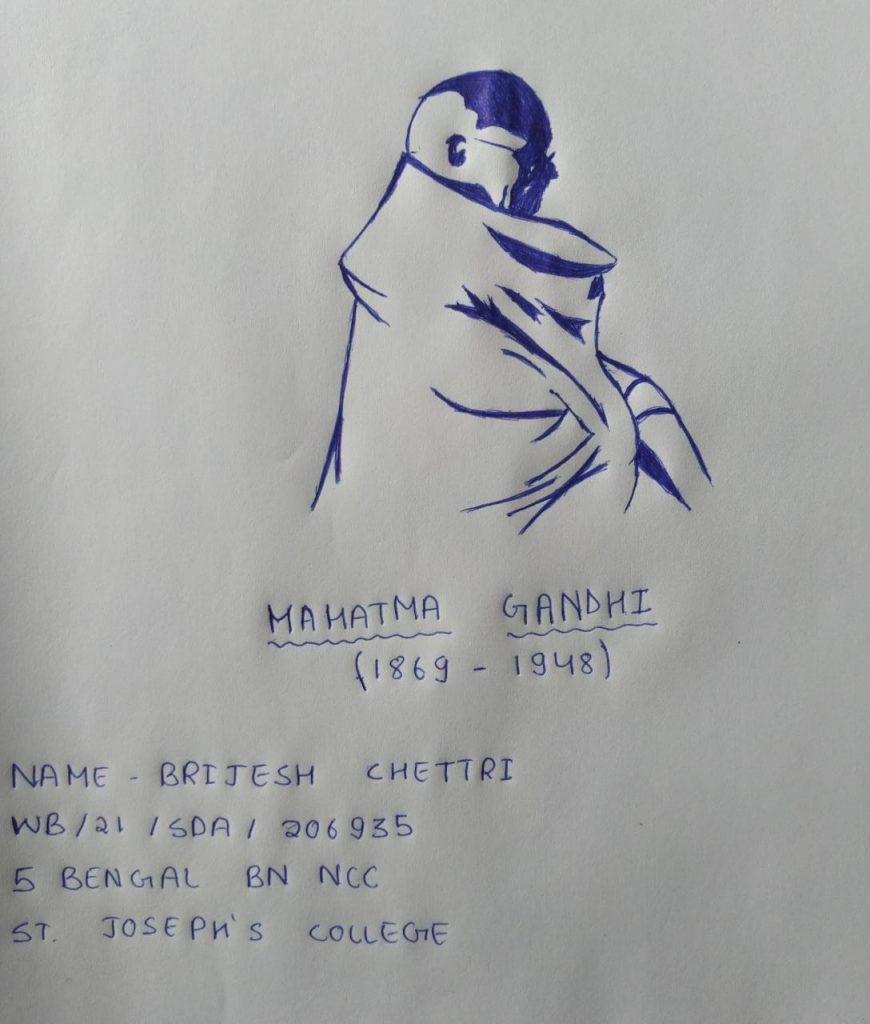 MAHATMA GANDHI
(1869 - 1948)
NAME - BRIJESH CHETTRI
WB/21/SDA/206935
5 BENGAL BN NCC
ST. JOSEPH'S COLLEGE